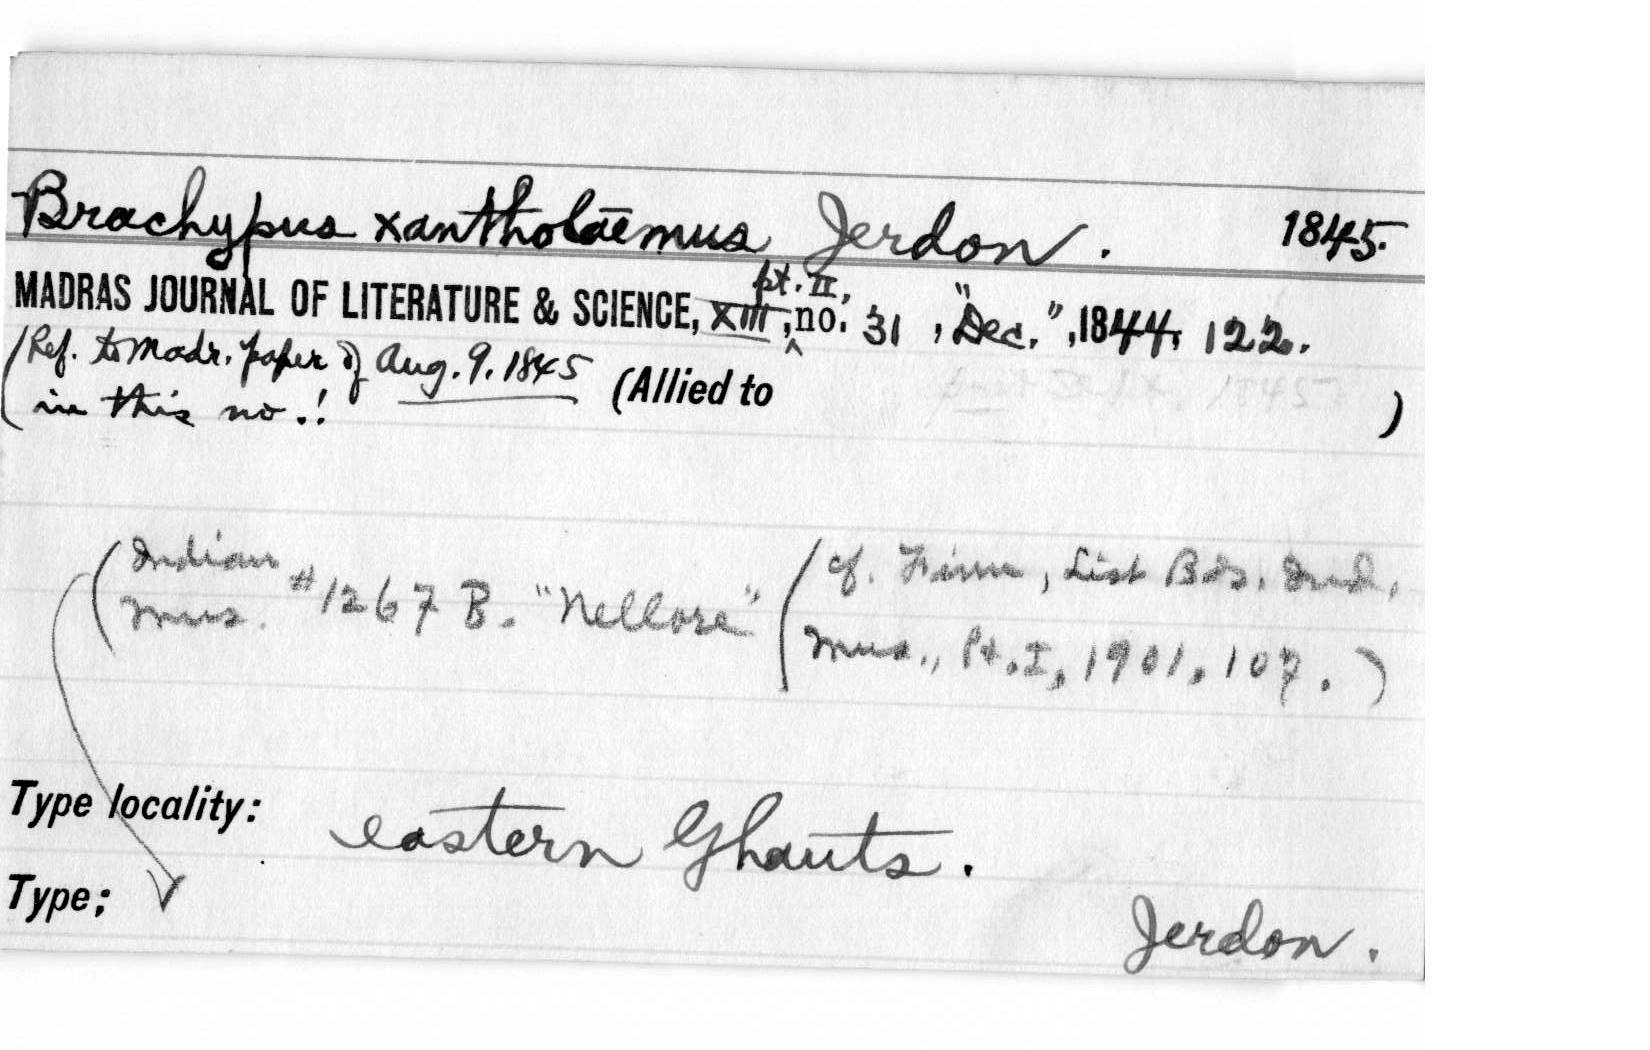 Brachypus xantholaemus Jerdon. 1845.
pt. II,
MADRAS JOURNAL OF LITERATURE & SCIENCE, XIII, no. 31, "Dec.", 1844, 122.
(Ref. to Madr. paper of Aug. 9. 1845 (Allied to )
in this no.!
(Indian Mus. #1267 B. "Nellore" (cf. Finn, List Bds. Ind.
Mus., Pt. I, 1901, 107.)
Type locality: eastern Ghauts.
Type:
Jerdon.